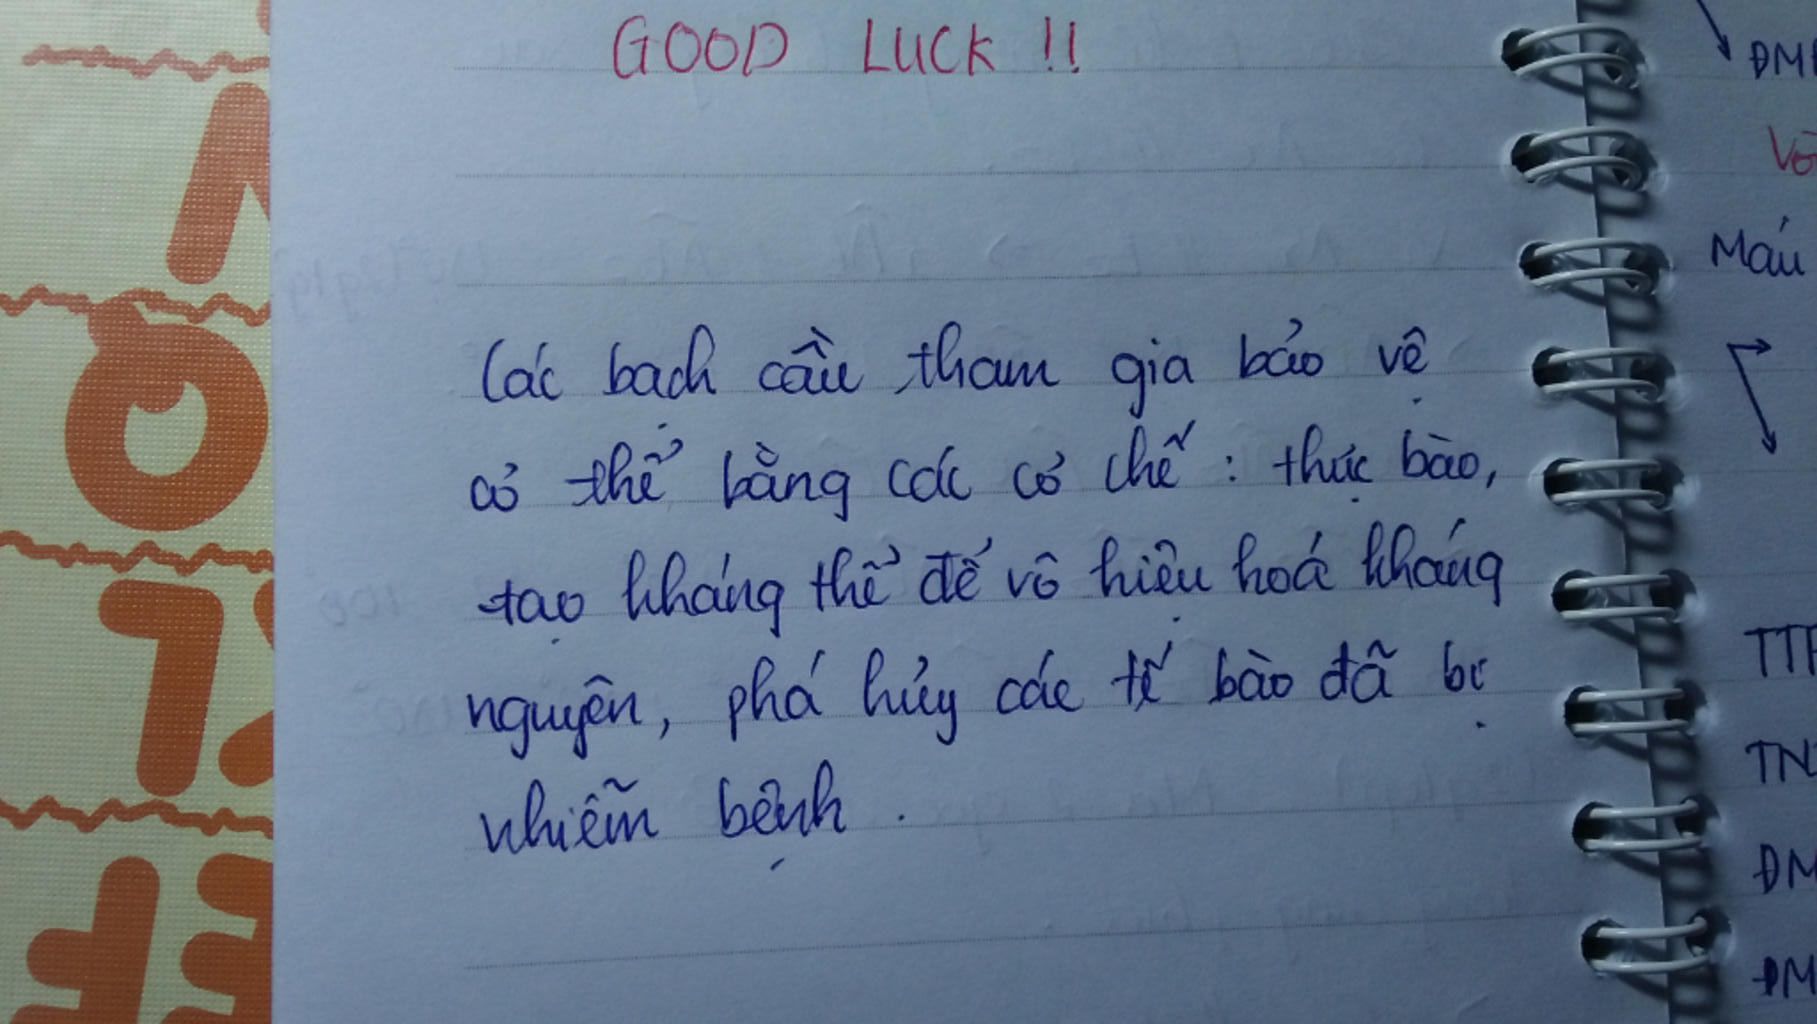 GOOD LUCK !!
Các bạch cầu tham gia bảo vệ
cơ thể bằng các cơ chế : thực bào,
tạo kháng thể để vô hiệu hoá kháng
nguyên, phá hủy các tế bào đã bị
nhiễm bệnh .
Máu